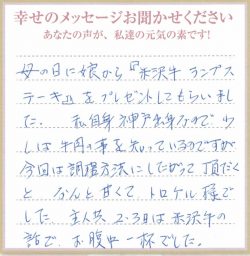 幸せのメッセージお聞かせください
あなたの声が、私達の元気の素です!
母の日に娘から『米沢牛ランプス
テーキ』をプレゼントしてもらいまし
た。私自身神戸出身なので少
しは牛肉の事を知っているのですが
今回は調理方法にしたがって頂だく
と なんと甘くて トロケル様で
した。主人共 2・3日は米沢牛の
話で、お腹中一杯でした。